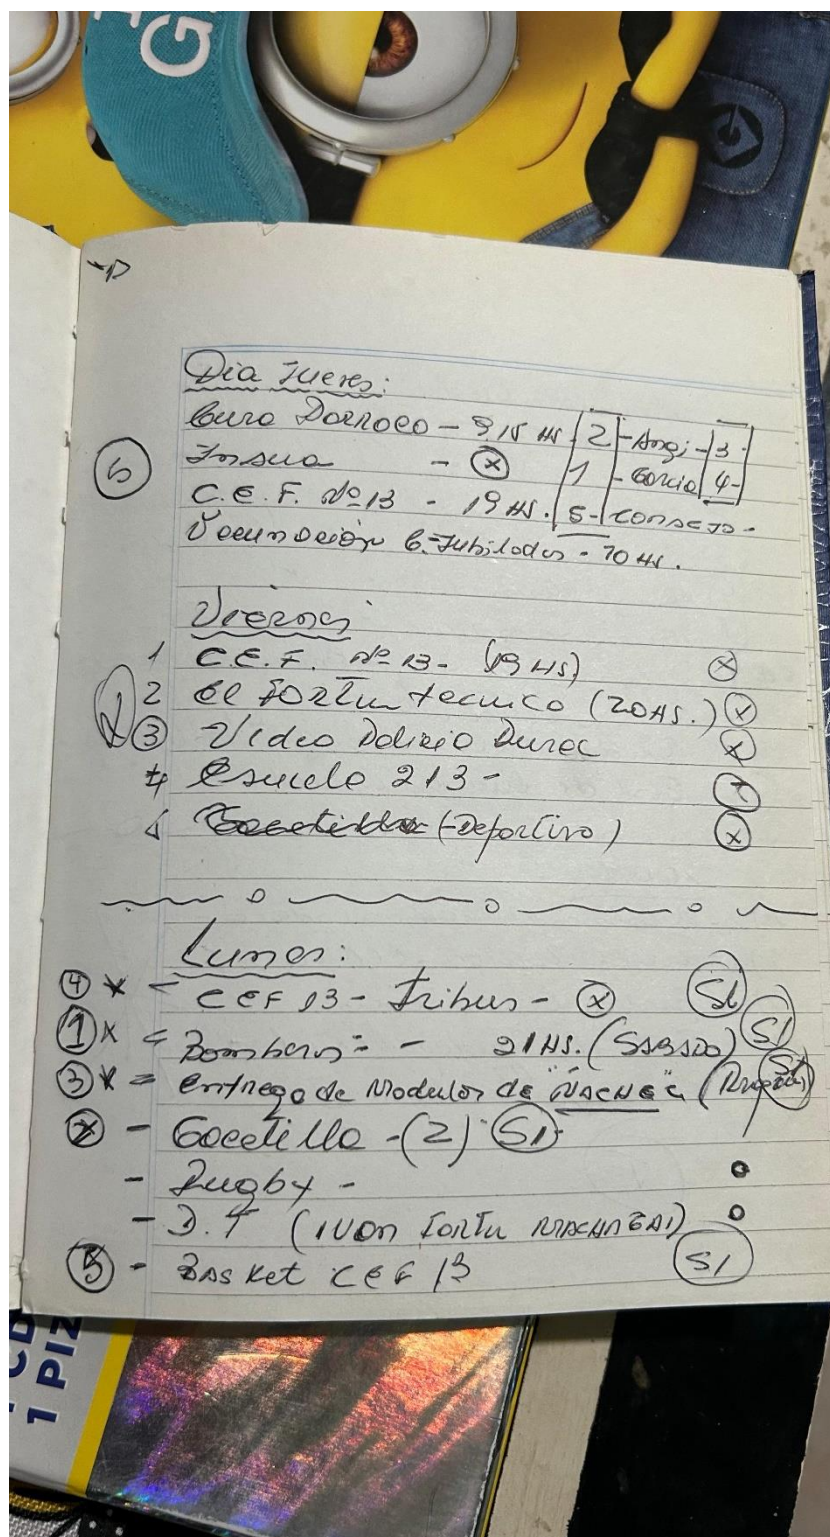 G
Dia Jueves:
Cura Parroco - 9 15 HS. 2 - Angi - 3
6 Insua - x 1 - Garcia 4-
C.E.F. Nº 13 - 19 HS. 5- CONSEJO-
Vacunación C. Jubilados - 10 HS.
Viernes
1 C.E.F. Nº 13- (19 HS) x
2 El FORTIN tecnico (20 HS.) x
3 Video Polizio Durec x
4 Escuela 213 -
Gacetilla (-Deportivo) x
Lunes:
4 x - CEF 13 - Tribus - x SI
1 x = Bomberos = - 21 HS. (SABADO) SI
3 x = entrega de Modulos de ÑACHEC SI
x - Gacetilla - (2) SI
- Rugby -
- D.T (IVAN FORTIN MACHAGAI)
5 - BASKET CEF 13 SI
CD
1 PIZ